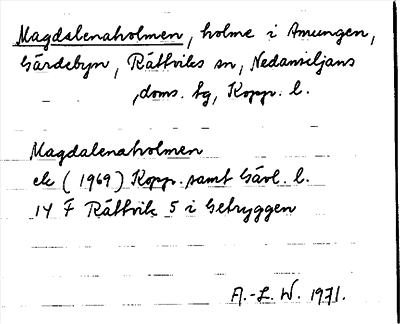 Magdalenaholmen, holme i Amungen,
Gärdebyn, Rättviks sn, Nedansiljans
doms. tg, Kopp. l.
Magdalenaholmen
ek (1969) Kopp. samt Gävl. l.
14 F Rättvik 5 i Getryggen
A.-L. W. 1971.